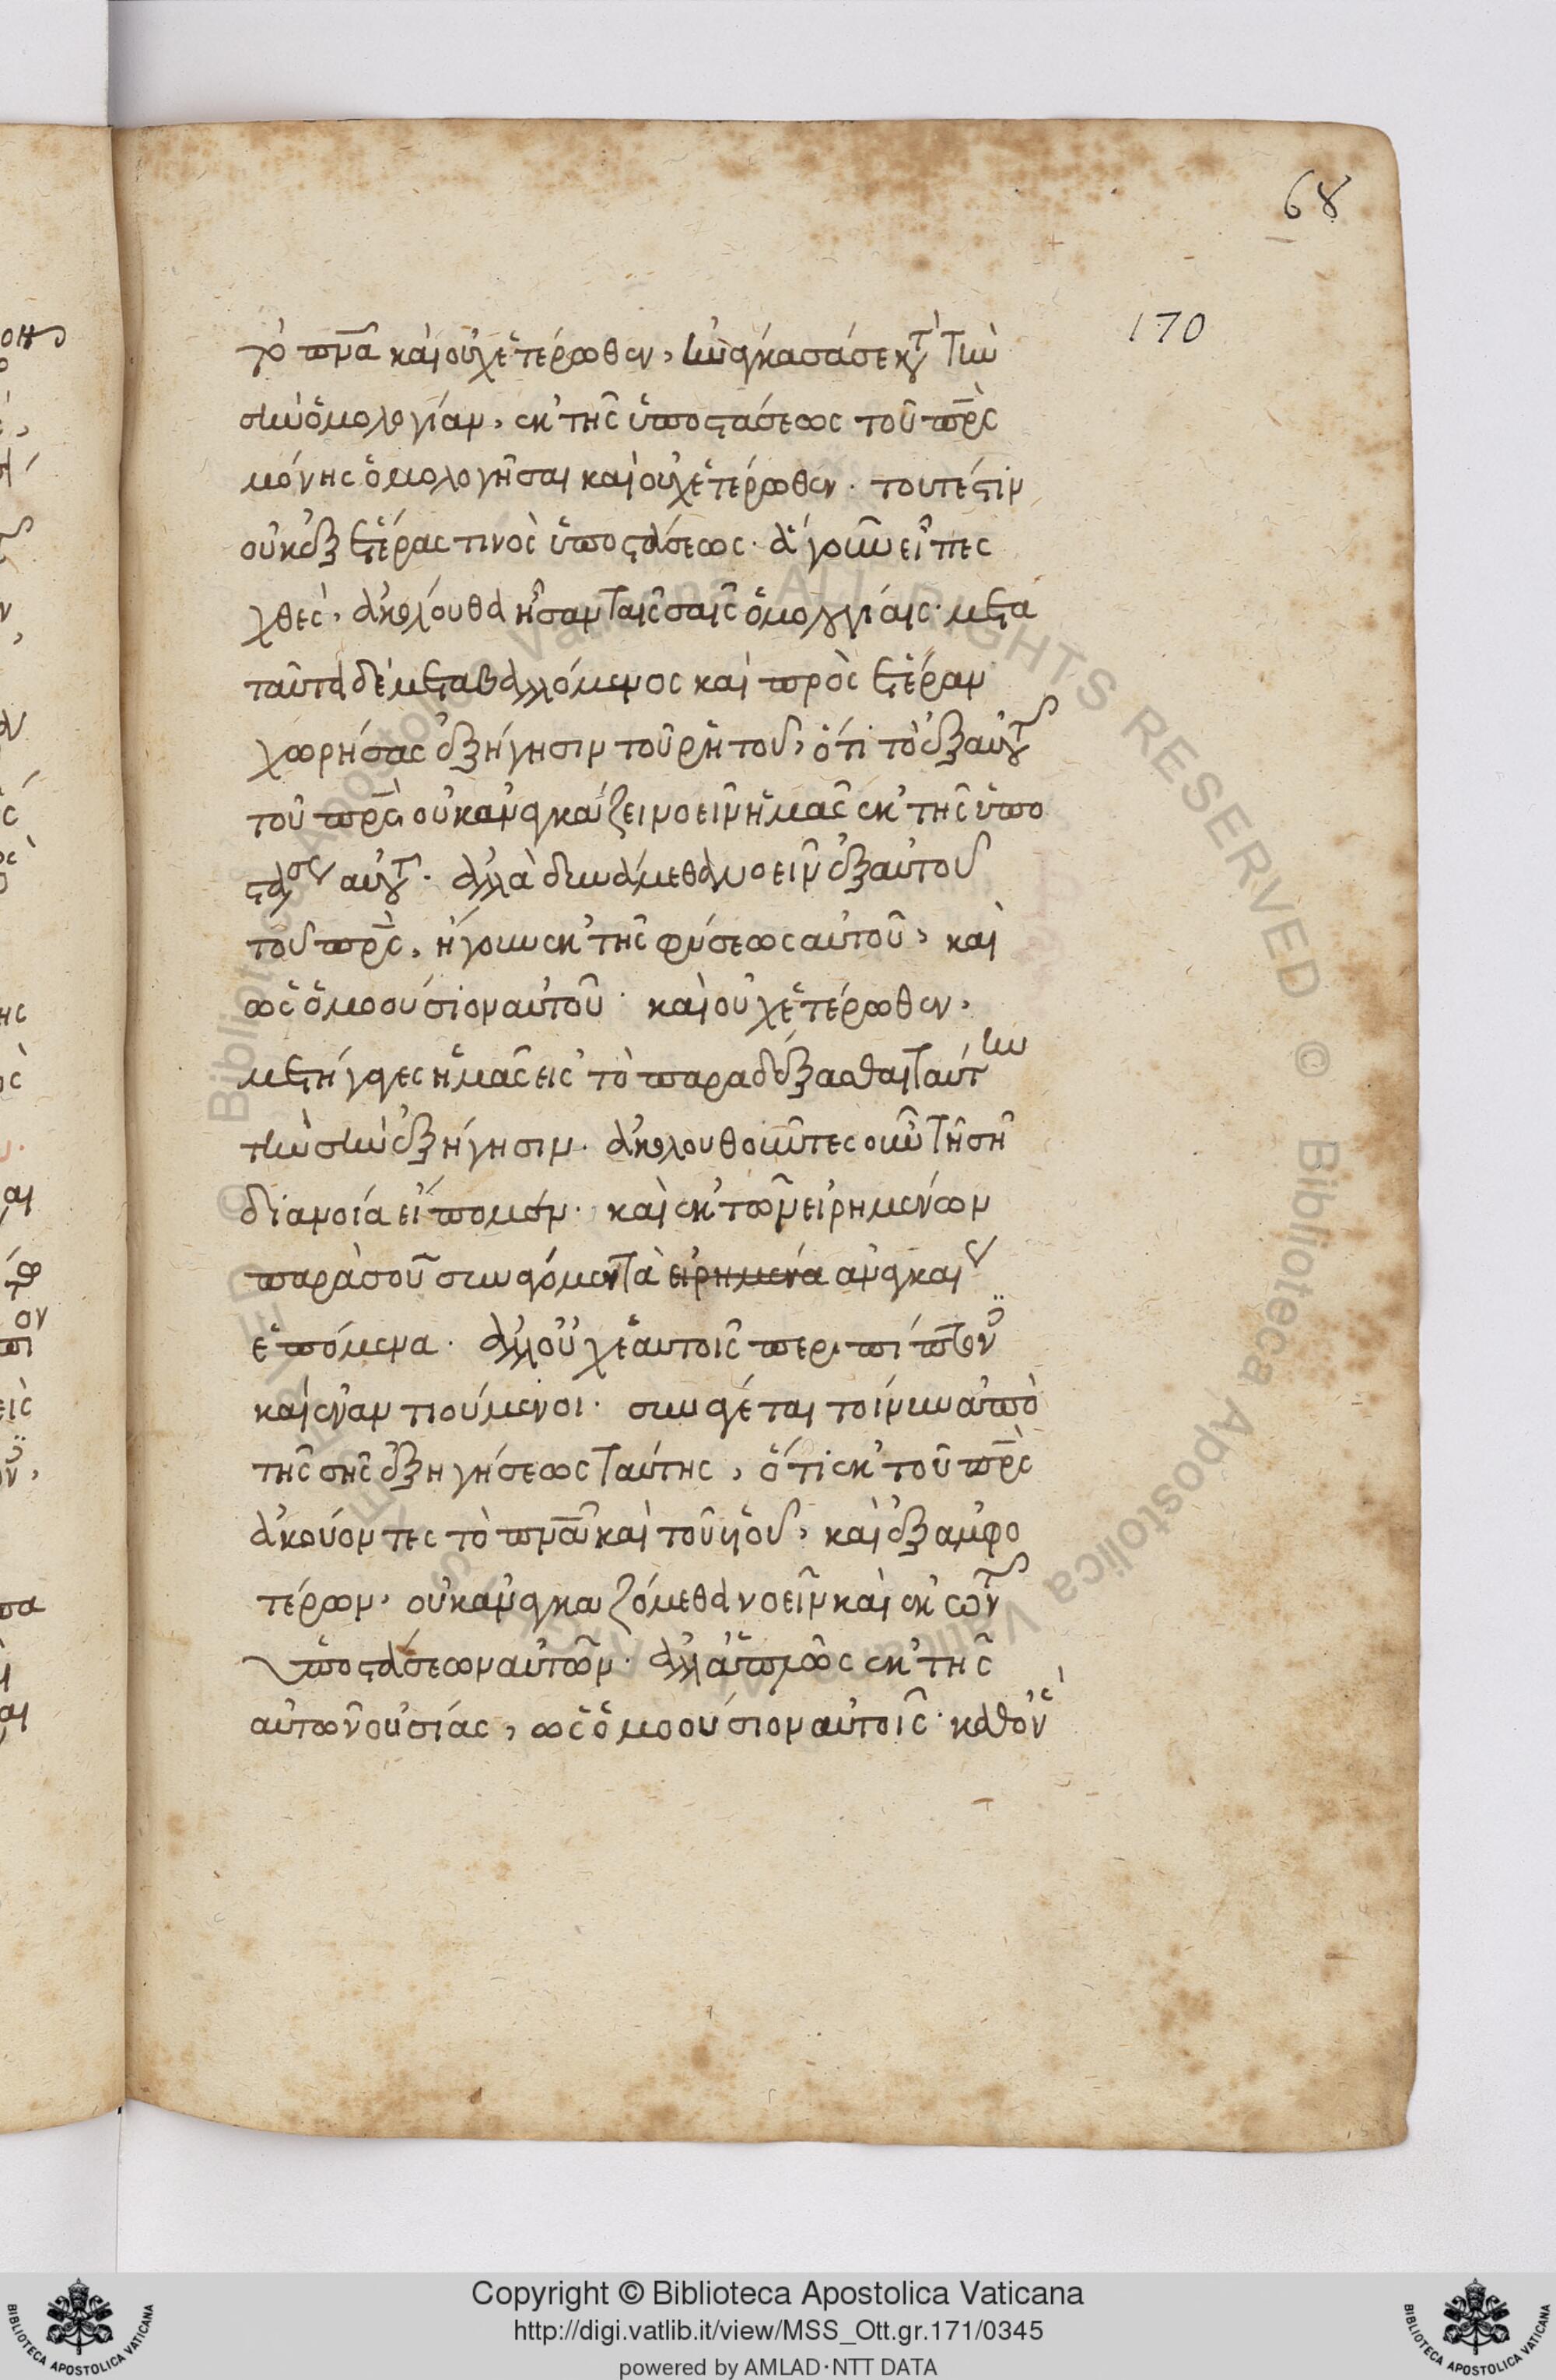 68
170
τὸ πνα καὶ οὐχ ἑτέρωθεν, ἠνάγκασά σε κατὰ τὴν
σὴν ὁμολογίαν, ἐκ τῆς ὑποστάσεως τοῦ πρς
μόνης ὁμολογῆσαι καὶ οὐχ ἑτέρωθεν. τουτέστιν
οὐκ ἐξ ἑτέρας τινὸς ὑποστάσεως. ἃ γοῦν εἶπες
χθὲς, ἀκόλουθα ἦσαν ταῖς σαῖς ὁμολογίαις. μετὰ
ταῦτα δὲ μεταβαλλόμενος καὶ πρὸς ἑτέραν
χωρήσας ἐξήγησιν τοῦ ῥητοῦ, ὅτι τὸ ἐξ αὐτοῦ
τοῦ πρς οὐκ ἀναγκάζει νοεῖν ἡμᾶς ἐκ τῆς ὑπο
στάσεως αὐτοῦ. ἀλλὰ δυνάμεθα νοεῖν ἐξ αὐτοῦ
τοῦ πρς, ἤγουν ἐκ τῆς φύσεως αὐτοῦ, καὶ
ὡς ὁμοούσιον αὐτοῦ. καὶ οὐχ ἑτέρωθεν,
μετήγαγες ἡμᾶς εἰς τὸ παραδέξασθαι ταύτην
τὴν σὴν ἐξήγησιν. ἀκολουθοῦντες οὖν τῇ σῇ
διανοίᾳ εἴπομεν. καὶ ἐκ τῶν εἰρημένων
παρὰ σοῦ συνάγομεν τὰ εἰρημένα ἀναγκαίως
ἑπόμενα. ἀλλ' οὐχ ἑαυτοῖς περιπίπτοντες
καὶ ἐναντιούμενοι. συνάγεται τοίνυν ἀπὸ
τῆς σῆς ἐξηγήσεως ταύτης, ὅτι ἐκ τοῦ πρς
ἀκούοντες τὸ πνα καὶ τοῦ υἱοῦ, καὶ ἐξ ἀμφο
τέρων, οὐκ ἀναγκαζόμεθα νοεῖν καὶ ἐκ τῶν
ὑποστάσεων αὐτῶν. ἀλλ' ἁπλῶς ἐκ τῆς
αὐτῶν οὐσίας, ὡς ὁμοούσιον αὐτοῖς. καθ' ὃν
Copyright © Biblioteca Apostolica Vaticana
http://digi.vatlib.it/view/MSS_Ott.gr.171/0345
powered by AMLAD·NTT DATA